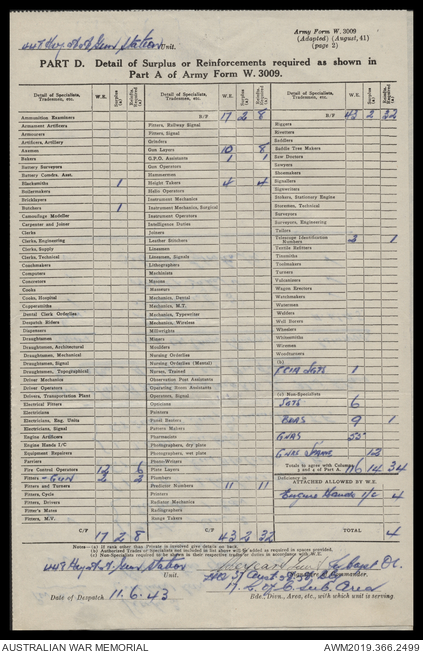 Army Form W. 3009
(Adapted) (August, 41)
(page 2)
Station Unit.
PART D. Detail of Surplus or Reinforcements required as shown in
Part A of Army Form W. 3009.
Detail of Specialists, Tradesmen, etc. W.E. Surplus (a) Reinfts. Required (a)
Ammunition Examiners
Armament Artificers
Armourers
Artificers, Artillery
Axemen
Bakers
Battery Surveyors
Battery Comdrs. Asst.
Blacksmiths 1
Boilermakers
Bricklayers
Butchers 1
Camouflage Modeller
Carpenter and Joiner
Clerks
Clerks, Engineering
Clerks, Supply
Clerks, Technical
Coachmakers
Computers
Concretors
Cooks
Cooks, Hospital
Coppersmiths
Dental Clerk Orderlies
Despatch Riders
Dispensers
Draughtsmen
Draughtsmen, Architectural
Draughtsmen, Mechanical
Draughtsmen, Signal
Draughtsmen, Topographical
Driver Mechanics
Driver Operators
Drivers, Transportation Plant
Electrical Fitters
Electricians
Electricians, Eng. Units
Electricians, Signal
Engine Artificers
Engine Hands I/C
Equipment Repairers
Farriers
Fire Control Operators 12 6
Fitters - GUN 2 2
Fitters and Turners
Fitters, Cycle
Fitters, Drivers
Fitter's Mates
Fitters, M.V.
C/F 17 2 8
Detail of Specialists, Tradesmen, etc. W.E. Surplus (a) Reinfts. Required (a)
B/F 17 2 8
Fitters, Railway Signal
Fitters, Signal
Grinders
Gun Layers 10 8
G.P.O. Assistants 1 1
Gun Operators
Hammermen
Height Takers 4 4
Helio Operators
Instrument Mechanics
Instrument Mechanics, Surgical
Instrument Operators
Intelligence Duties
Joiners
Leather Stitchers
Linesmen
Linesmen, Signals
Lithographers
Machinists
Masons
Masseurs
Mechanics, Dental
Mechanics, M.T.
Mechanics, Typewriter
Mechanics, Wireless
Millwrights
Miners
Moulders
Nursing Orderlies
Nursing Orderlies (Mental)
Nurses, Trained
Observation Post Assistants
Operating Room Assistants
Operators, Signal
Opticians
Painters
Panel Beaters
Pattern Makers
Pharmacists
Photographers, dry plate
Photographers, wet plate
Photo-Writers
Plate Layers
Plumbers
Predictor Numbers 11 11
Printers
Radiator Mechanics
Radiographers
Range Takers
C/F 43 2 32
Detail of Specialists, Tradesmen, etc. W.E. Surplus (a) Reinfts. Required (a)
B/F 43 2 32
Riggers
Rivetters
Saddlers
Saddle Tree Makers
Saw Doctors
Sawyers
Shoemakers
Signallers
Signwriters
Stokers, Stationary Engine
Storemen, Technical
Surveyors
Surveyors, Engineering
Tailors
Telescope Identification Numbers 2 1
Textile Refitters
Tinsmiths
Toolmakers
Turners
Vulcanizers
Wagon Erectors
Watchmakers
Watermen
Welders
Well Borers
Wheelers
Whitesmiths
Wiremen
Woodturners
(b)
1
(c) Non-Specialists
SGTS 6
BDRS 9 1
GNRS 55
GNRS 12
Totals to agree with Columns 3 and 4 of Part A. 116 14 34
Deficiency in
ATTACHED ALLOWED BY W.E.
Engine Hands I/C 4
TOTAL 4
Notes.—(a) If rank other than Private is involved give details on back.
(b) Authorized Trades or Specialists not included in list above will be added as required in spaces provided.
(c) Non-Specialists required to be shown in their respective trades or duties in accordance with W.E.
Station
Unit.
Commander.
Sub. Area
Date of Despatch 11.6.43
Bde., Divn., Area, etc., with which unit is serving.
AUSTRALIAN WAR MEMORIAL
AWM2019.366.2499